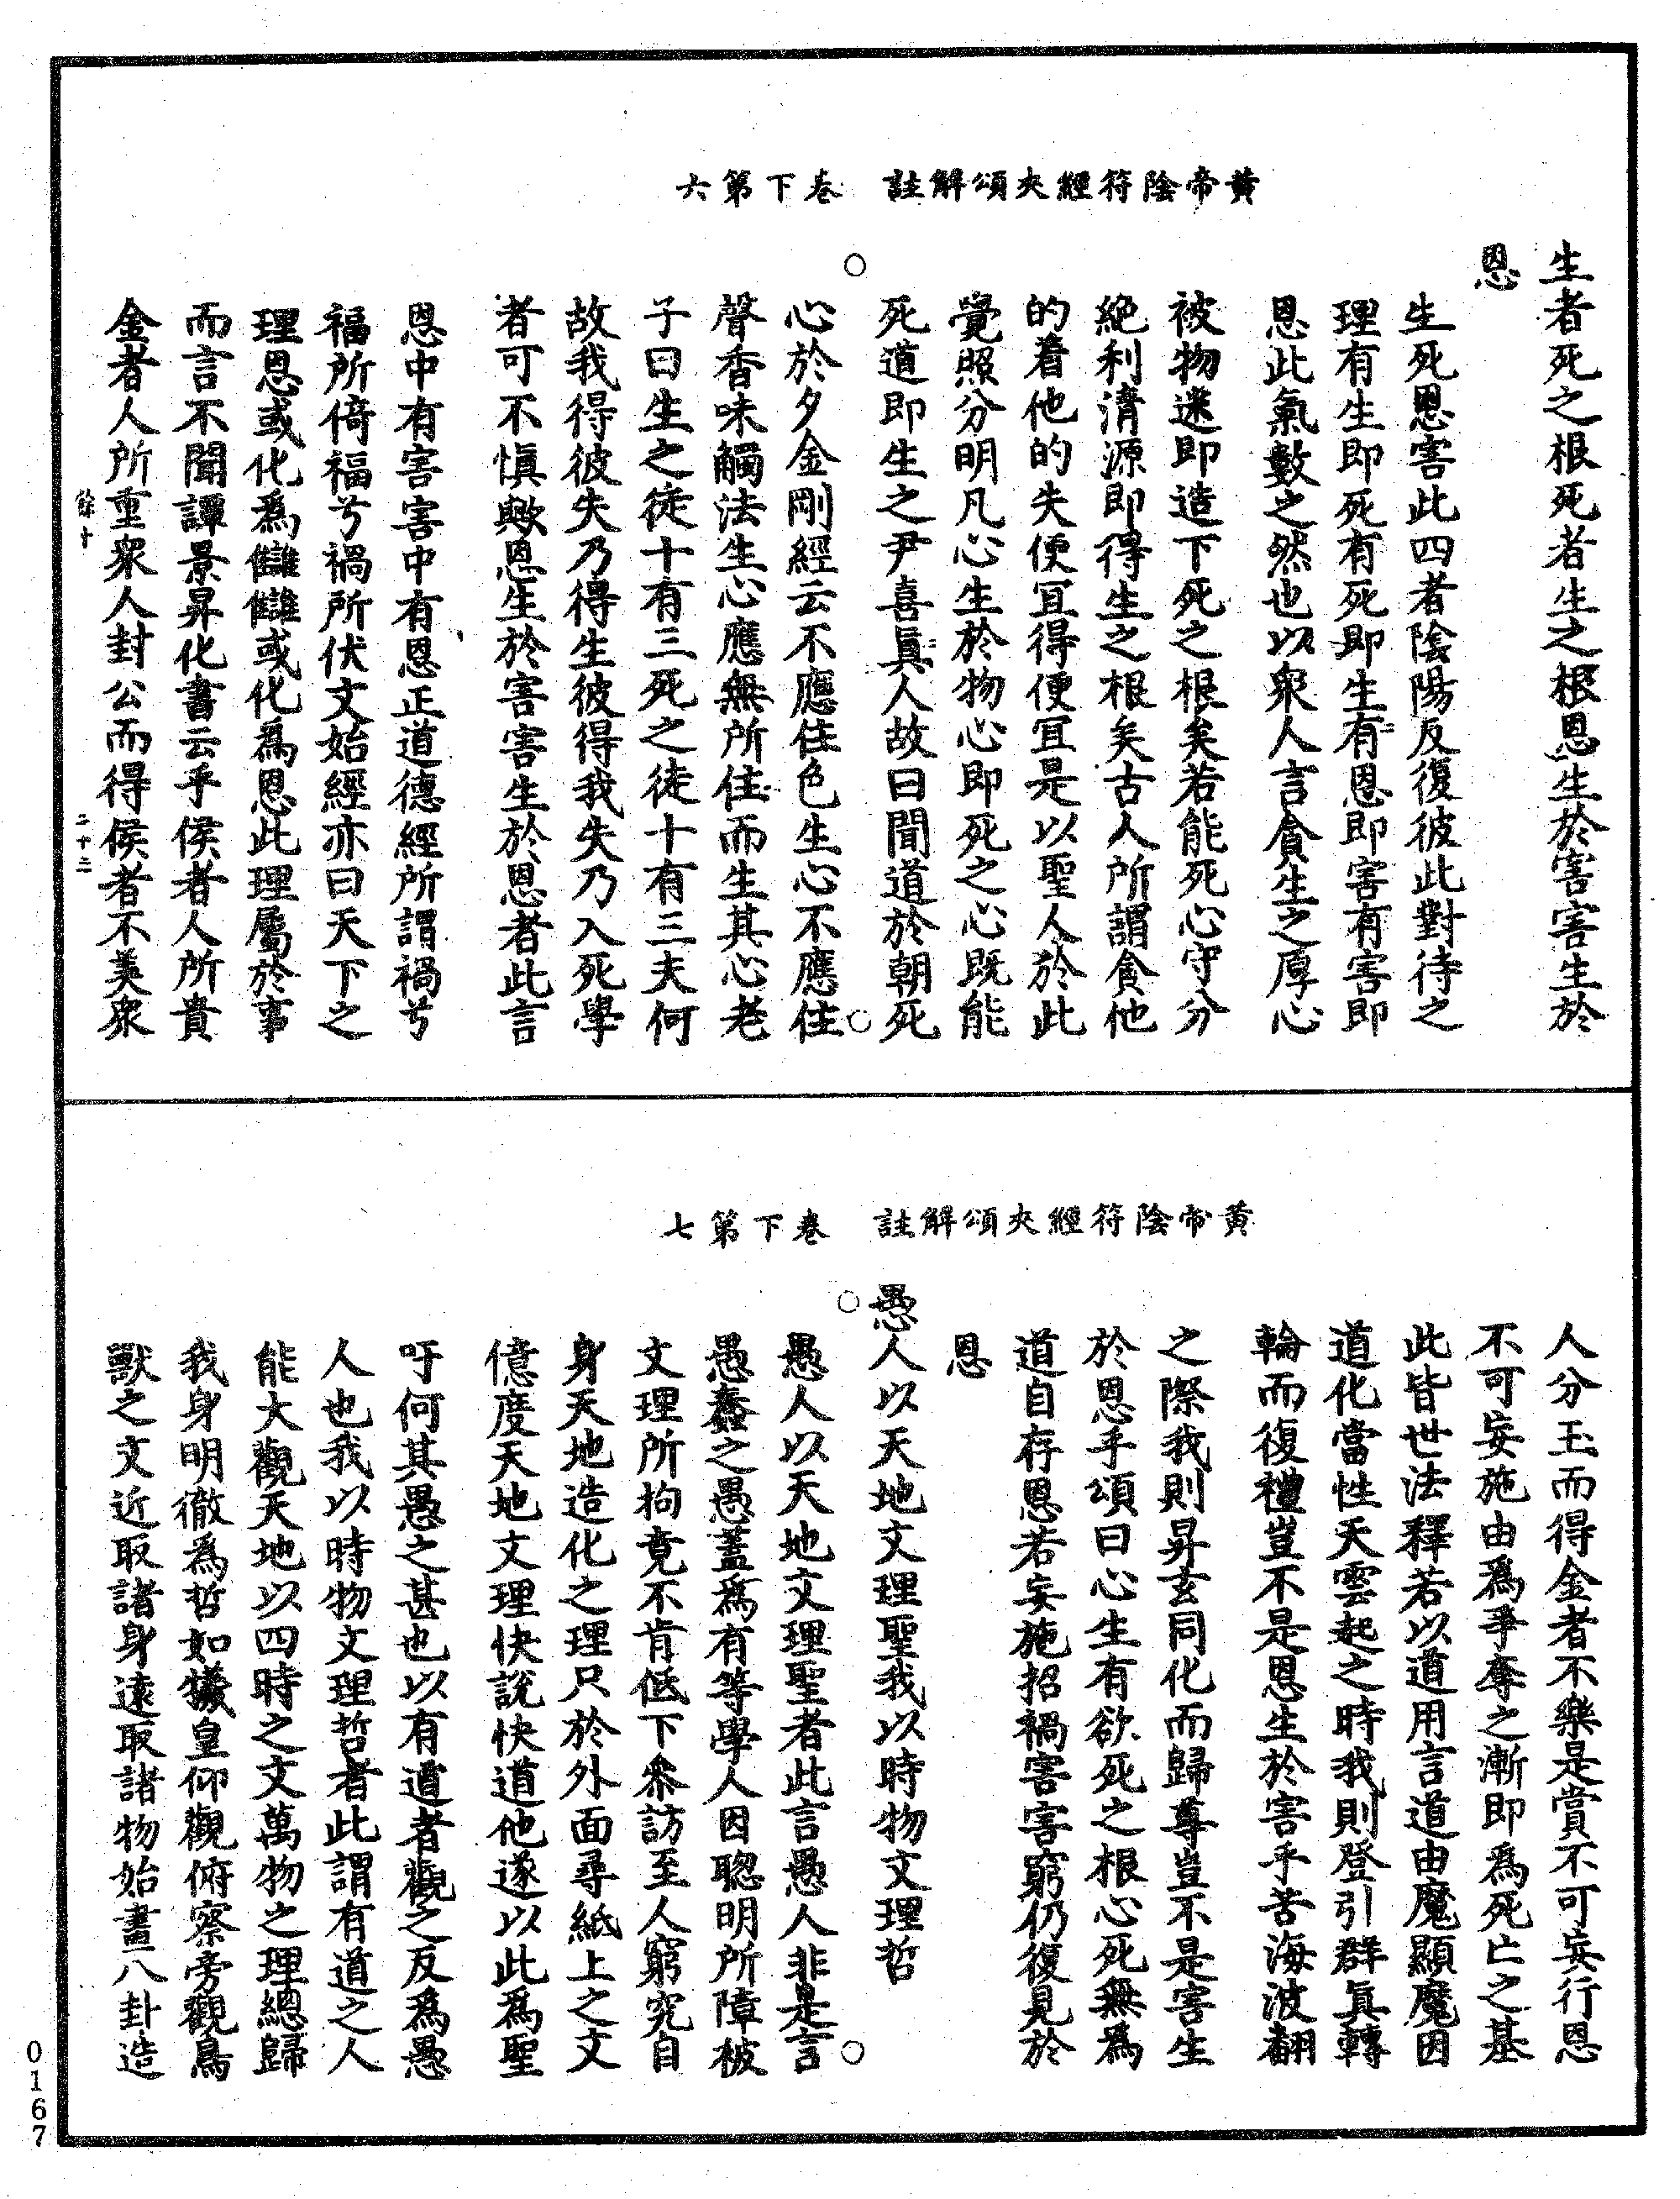 黃帝陰符經夾頌解註　卷下第六
生者死之根死者生之根恩生於害害生於
恩
生死恩害此四者陰陽反復彼此對待之
理有生即死有死即生有恩即害有害即
恩此氣數之然也以衆人言貪生之厚心
被物迷即造下死之根矣若能死心守分
絶利清源即得生之根矣古人所謂貪他
的着他的失便冝得便冝是以聖人於此
覺照分明凡心生於物心即死之心既能
死道即生之尹喜真人故曰聞道於朝死
心於夕金剛經云不應住色生心不應住
聲香味觸法生心應無所住而生其心老
子曰生之徒十有三死之徒十有三夫何
故我得彼失乃得生彼得我失乃入死學
者可不愼歟恩生於害害生於恩者此言
恩中有害害中有恩正道德經所謂禍兮
福所倚福兮禍所伏文始經亦曰天下之
理恩或化爲讎讎或化爲恩此理屬於事
而言不聞譚景昇化書云乎侯者人所貴
金者人所重衆人封公而得侯者不美衆
餘十
二十二
黃帝陰符經夾頌解註　卷下第七
人分玉而得金者不樂是賞不可妄行恩
不可妄施由爲爭奪之漸即爲死亡之基
此皆世法釋若以道用言道由魔顯魔因
道化當性天雲起之時我則登引群眞轉
輪而復禮豈不是恩生於害乎苦海波翻
之際我則昇玄同化而歸尊豈不是害生
於恩乎頌曰心生有欲死之根心死無爲
道自存恩若妄施招禍害害窮仍復見於
恩
愚人以天地文理聖我以時物文理哲
愚人以天地文理聖者此言愚人非是言
愚蠢之愚蓋爲有等學人因聰明所障被
文理所拘竟不肯低下叅訪至人窮究自
身天地造化之理只於外面尋紙上之文
億度天地文理快說快道他遂以此爲聖
吁何其愚之甚也以有道者觀之反爲愚
人也我以時物文理哲者此謂有道之人
能大觀天地以四時之文萬物之理總歸
我身明徹爲哲如犧皇仰觀俯察旁觀鳥
獸之文近取諸身遠取諸物始畫八卦造
0167